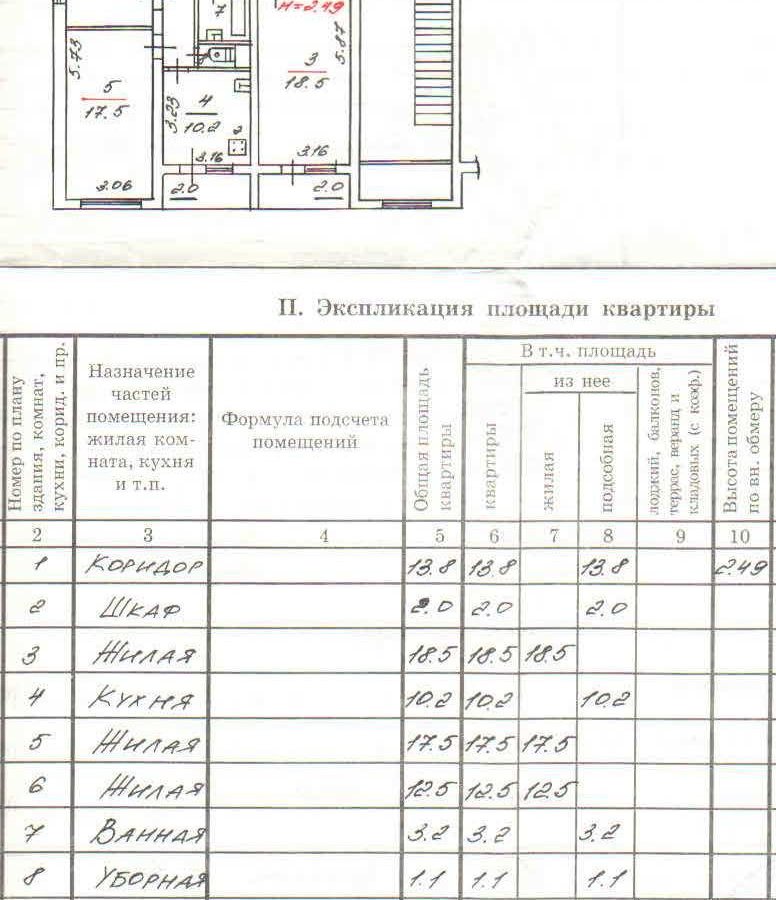 7
H=2.49
5.73
5
17.5
3.06
3.23
4
10.2
3.16
2.0
3
18.5
5.87
3.16
2.0
II. Экспликация площади квартиры
Номер по плану здания, комнат, кухни, корид. и пр.
Назначение
частей
помещения:
жилая ком-
ната, кухня
и т.п.
Формула подсчета
помещений
Общая площадь
квартиры
В т.ч. площадь
квартиры
из нее
жилая
подсобная
лоджий, балконов,
террас, веранд и
кладовых (с коэф.)
Высота помещений
по вн. обмеру
2 3 4 5 6 7 8 9 10
1 Коридор 13.8 13.8 13.8 2.49
2 Шкаф 2.0 2.0 2.0
3 Жилая 18.5 18.5 18.5
4 Кухня 10.2 10.2 10.2
5 Жилая 17.5 17.5 17.5
6 Жилая 12.5 12.5 12.5
7 Ванная 3.2 3.2 3.2
8 Уборная 1.1 1.1 1.1